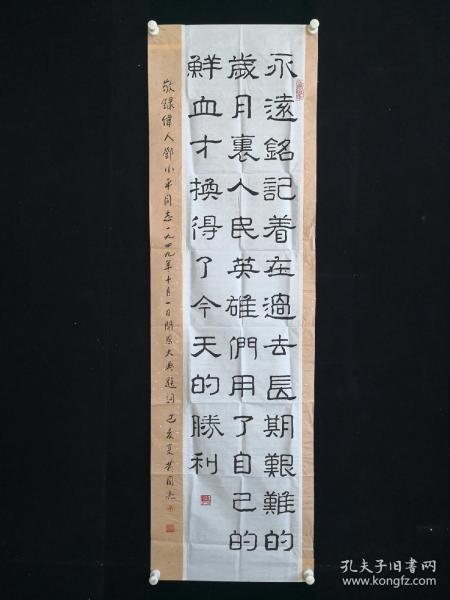 永遠銘記着在過去長期艱難的
歲月裏人民英雄們用了自己的
鮮血才換得了今天的勝利
敬錄偉人鄧小平同志一九四九年十月一日開國大典題詞 己亥夏
孔夫子旧书网
www.kongfz.com